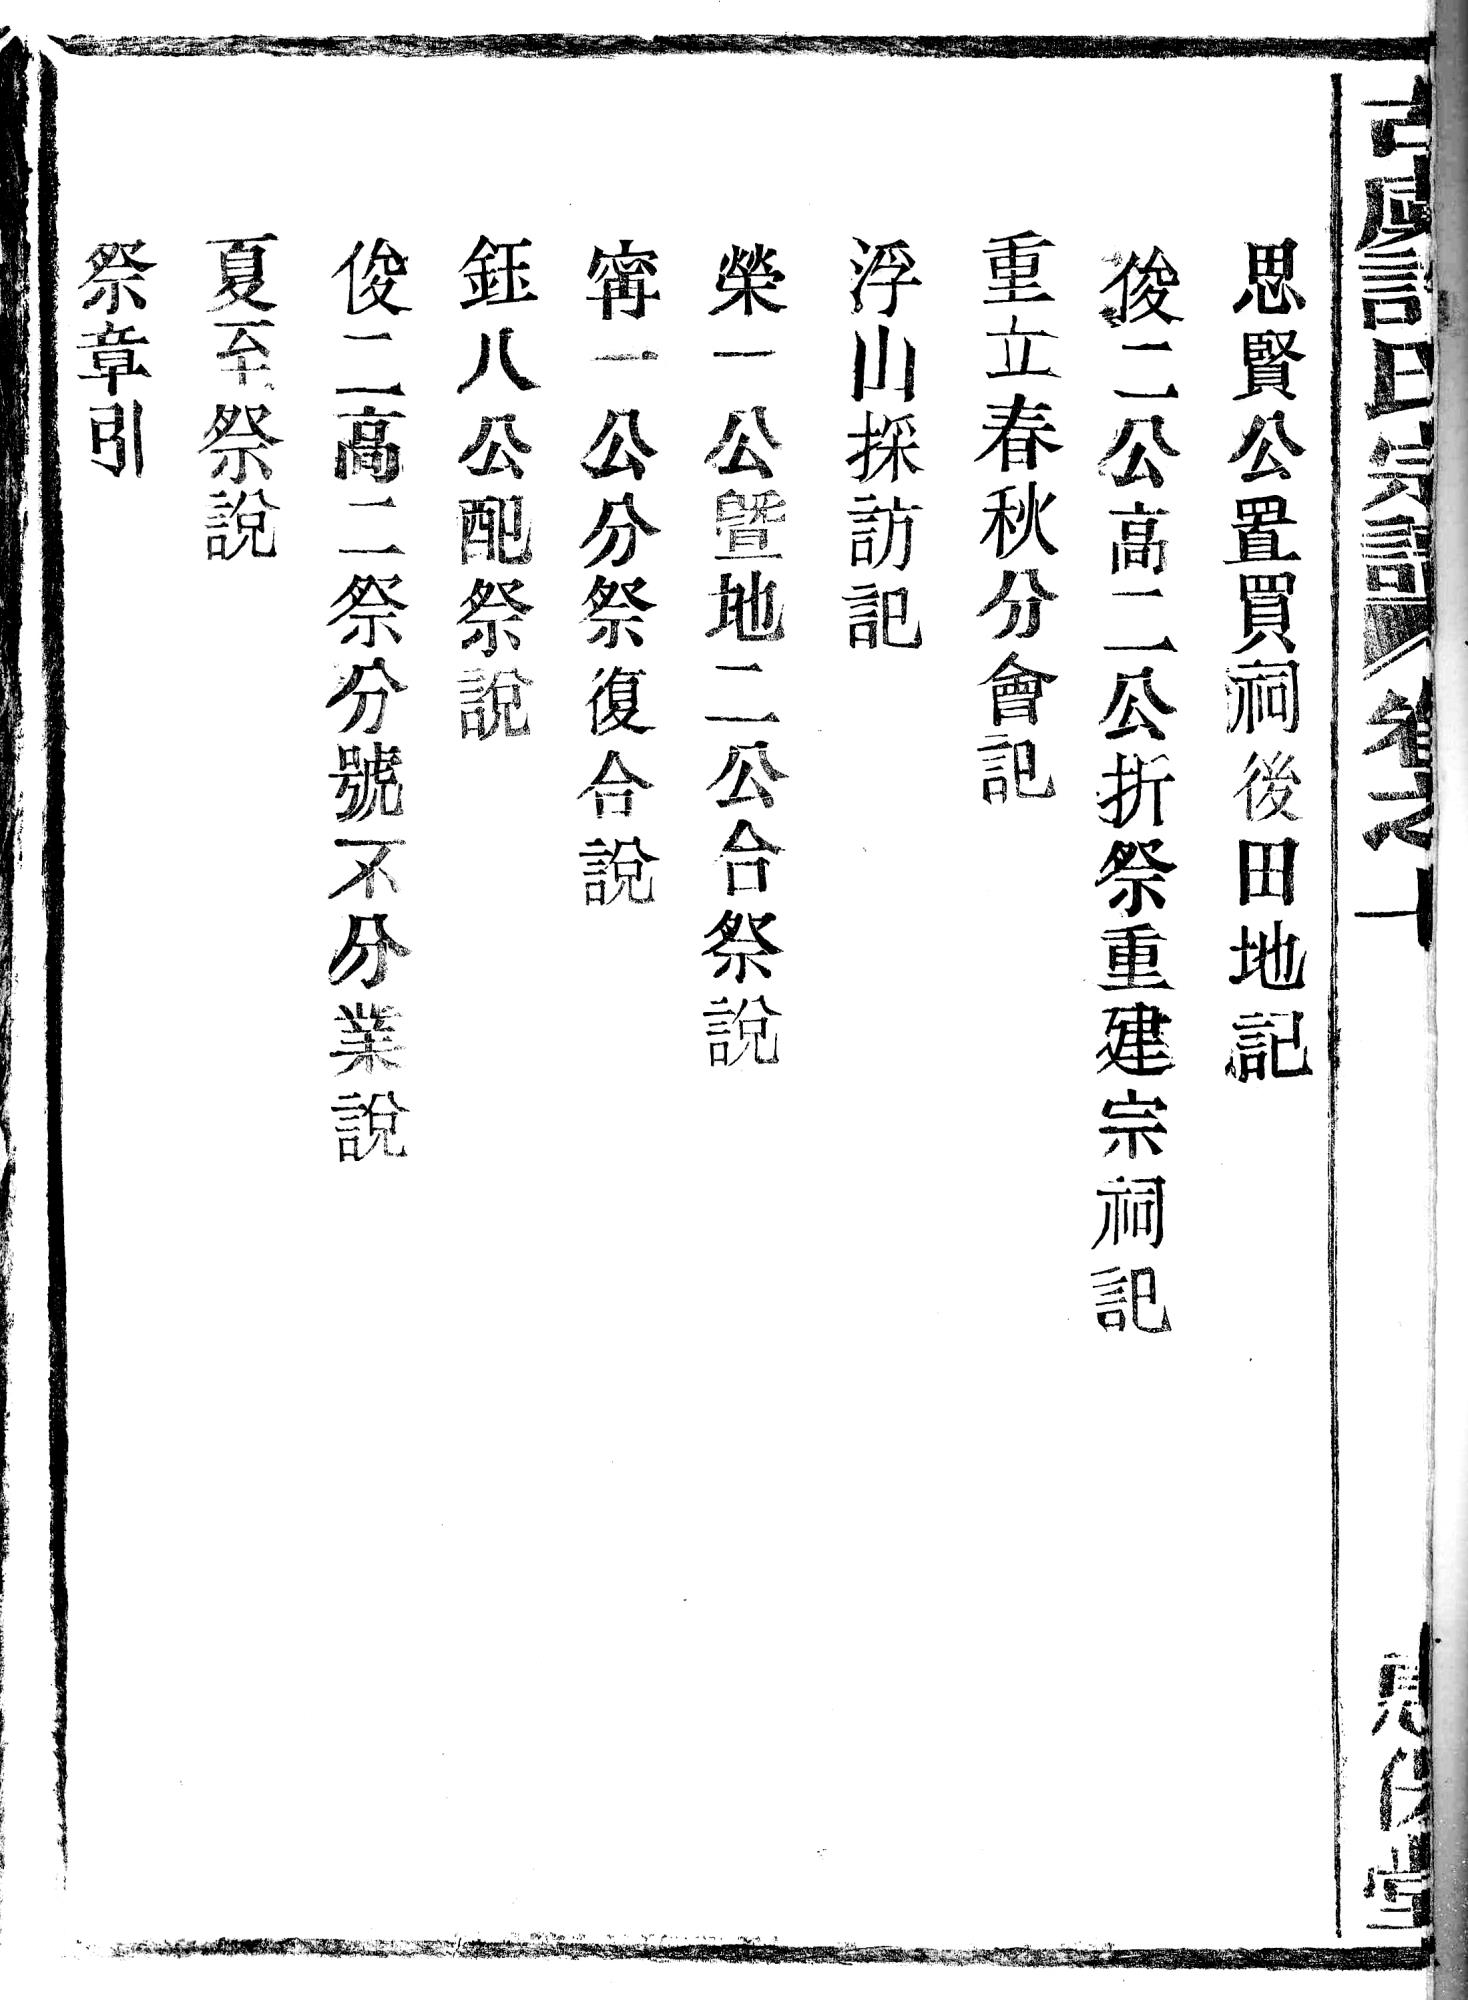 思賢公置買祠後田地記
俊二公高二公折祭重建宗祠記
重立春秋分會記
浮山採訪記
榮一公暨地二公合祭說
甯一公分祭復合說
鈺八公配祭說
俊二高二祭分號不分業說
夏至祭說
祭章引
古虞許氏宗譜 卷之
堂